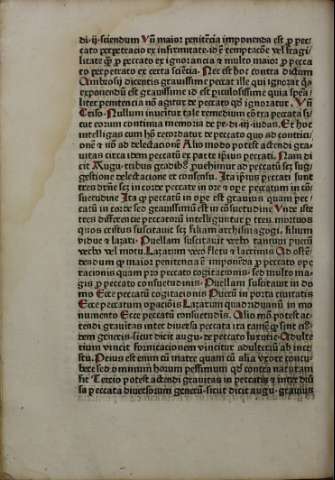 di·ij·sciendum Vñ maior penitẽcia imponenda est ꝓ pec
cato perpetracio ex infirmitate·id ẽ temptacõne vel fragi
litate ꝙ̃ ꝓ peccato ex ignorancia & multo maior ꝓ pecca
to perpetrato ex certa sciẽtia· Nec est hoc contra dictum
Ambrosij dicentis grauissime peccat ille qui ignorat q̃a
exponendũ est grauissime id est piculosissime quia spẽa
liter penitencia nõ agitur de peccato qđ ignoratur· Vñ
Criso·Nullum inuenitur tale remediũ cõtra peccata si
cut eorum continua memoria de pe·di·iij·iudas· Et hoc
intelligas cum hõ recordatur de peccato quo ad contrici
onẽ & nõ ad delectacionẽ Alio modo potest actẽdi gra
uitas circa idem peccatũ ex parte ipsius peccati· Nam di
cit Augu·tribus gradibꝫ puehimur ad peccatũ sꝫ sug
gestione delectacione et consensu· Ita ipsius peccati sunt
tres drñe sꝫ in corde peccate in ore & ope peccatum in cõ
suetudine Ita ꝙ peccatũ in ope est grauius quam pec
catũ in corde sed grauissimũ est in cõsuetudine Vnde iste
tres differencie peccatorũ intelliguntur ꝑ tres mortuos
quos cristus suscitauit sꝫ filiam archisinagogi· filium
vidue & lazari· Puellam suscitauit verbo tantum puerũ
verbo vel motu· Lazarum vero fletu & lacrimis Ad ostẽ
dendum ꝙ maior penitencia ẽ imponẽda ꝓ peccato ope
racionis quam pro peccato cogitacionis·sed multo ma
gis ꝓ peccato consuetudinis· Puellam suscitauit in do
mo Ecce peccatũ cogitacionis Puerũ in porta ciuitatis
Ecce peccatum opaciõis Lazarum quadriduanũ in mo
numento Ecce peccatũ consuetudĩs· Alio mõ potest at
tendi grauitas inter diuersa peccata ita tamẽ ꝙ sint eius
dem generis·sicut dicit augu·de peccato luxurie·Adulte
rium vincit fornicacionem vincitur adulteriũ ab ince
stu· Peius est enim cũ matre quam cũ alia vxore concu
bere sed õminum horum pessimum qđ contra naturam
fit Tercio potest actẽdi grauitas in peccatis & inter diũ
sa peccata diuersorum generũ·sicut dicit augu·grauius